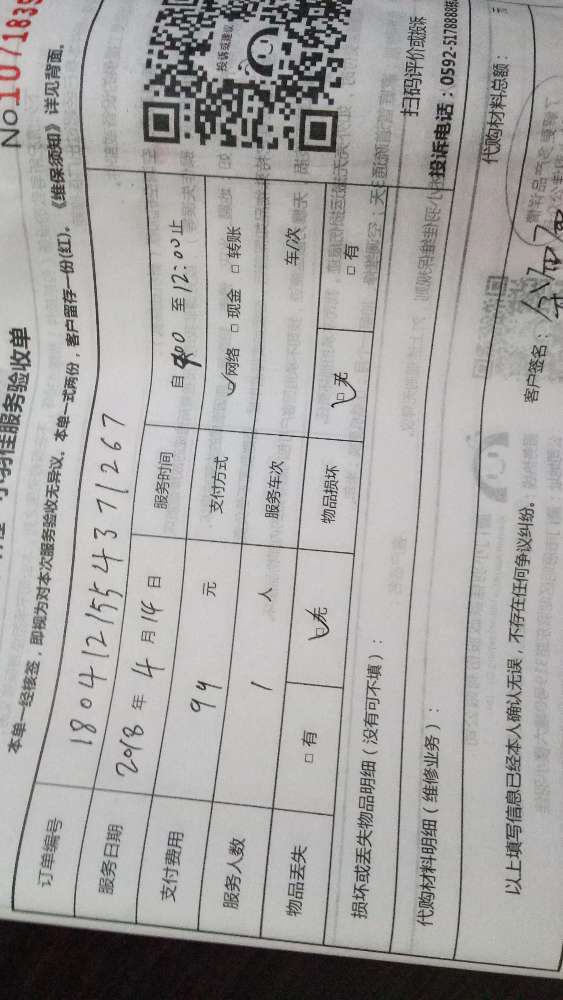 No 1071835
小羽佳服务验收单
本单一经核签，即视为对本次服务验收无异议。本单一式两份，客户留存一份(红)。 《维保须知》详见背面。
订单编号 180412155437 1267
服务日期 2018 年 4 月 14 日 服务时间 自 至 12:00 止
支付费用 94 元 支付方式 网络 现金 转账
服务人数 1 人 服务车次 车/次
物品丢失 有 无 物品损坏 无 有
损坏或丢失物品明细（没有可不填）：
代购材料明细（维修业务）：
代购材料总额：
以上填写信息已经本人确认无误，不存在任何争议纠纷。
客户签名：
投诉或建议
扫码评价或投诉
投诉电话：0592-5178888转